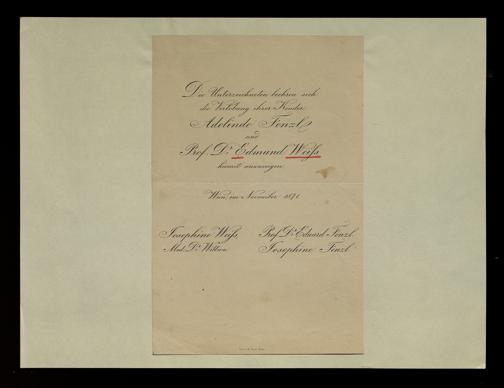 Die Unterzeichneten beehren sich
die Verlobung ihrer Kinder
Adelinde Fenzl
und
Prof. Dr. Edmund Weiſs
hiemit anzuzeigen.
Wien, im November 1871.
Josephine Weiſs, Prof. Dr. Eduard Fenzl
Med. Dr. Witwe Josephine Fenzl